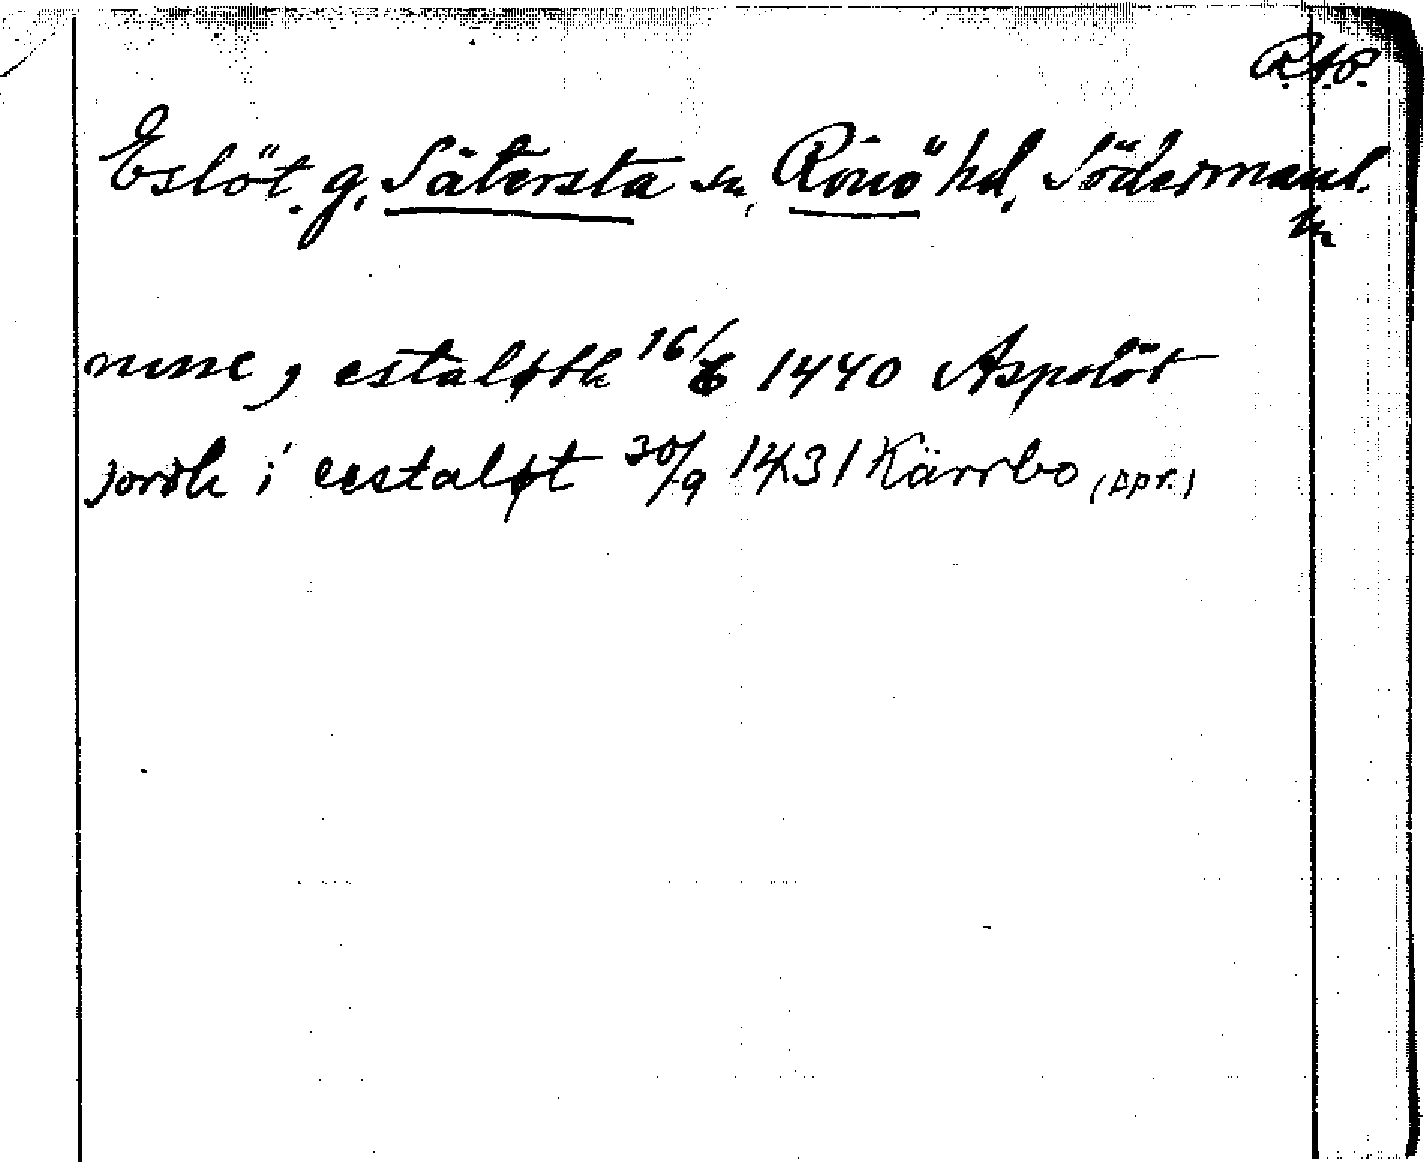 R.A.P.
Eslöt. g. Sätersta sn, Rönö hd. Södermanl.
n
nusse, estaløth 16/6 1440 Aspolöt
jordh i eestaløt 30/9 1431 Kärrbo (ppr.)